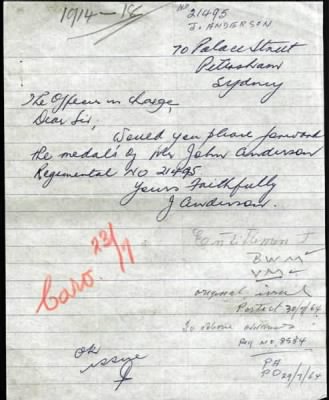 1914 - 18
No 21495
J. ANDERSON
70 Palace Street
Petersham
Sydney
The Officer in charge,
Dear Sir,
Would you please forward
the medals of John Anderson
Regimental NO 21495
Yours Faithfully
J Anderson.
23/7
Entitlement
BWM
VM
original issue
Posted 30/7/64
To above address
Reg No. 8984
OK
issue
29/7/64